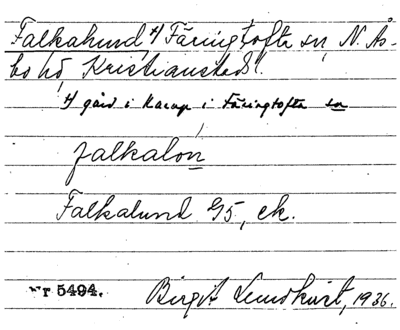 Falkahund 4) Färingtofta sn, N. Ås-
bo hd, Kristianstads l.
4) gård i Karup i Färingtofta sn
falkalón
Falkalund G5, ek.
Nr 5494. Birgit Lundkvist, 1936.